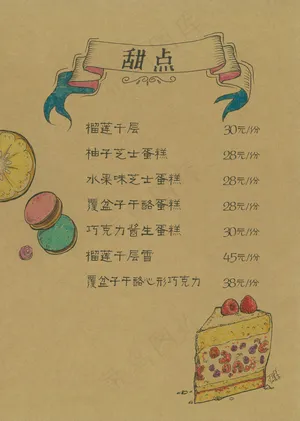 甜点
榴莲千层 30元/份
柚子芝士蛋糕 28元/份
水果味芝士蛋糕 28元/份
覆盆子干酪蛋糕 28元/份
巧克力酱生蛋糕 30元/份
榴莲千层雪 45元/份
覆盆子干酪心形巧克力 38元/份